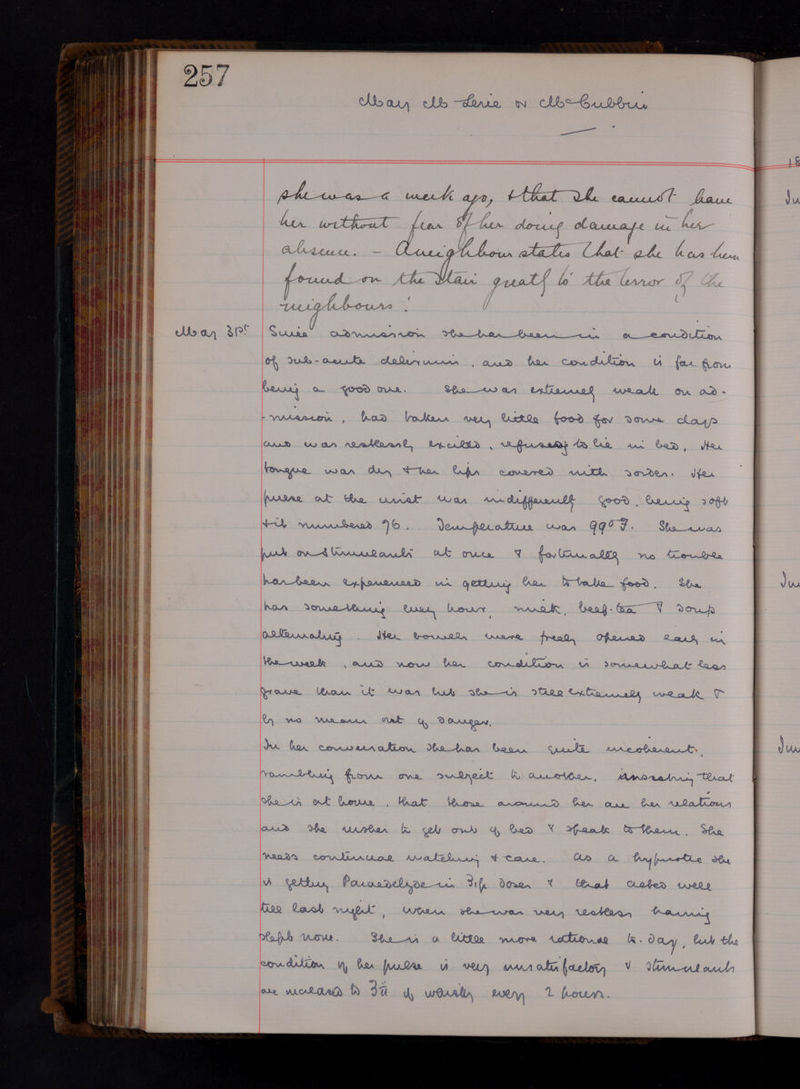 257
Mary Mc Lerie or McCubbin
she was a week ago, & that she cannot leave
her without fear of her doing damage in her
absence. - A neighbour states that she has been
found on the stair greatly to the terror of the
neighbours.
May 31st Since admission she has been in a condition
of sub-acute delirium, and her condition is far from
being a good one. She was extremely weak on ad-
-mission, had taken very little food for some days
and was restlessly excited, refusing to lie in bed. Her
tongue was dry & her lips covered with sordes. Her
pulse at the wrist was indifferently good, being soft
& it numbered 96. Temperature was 99° F. She was
put on stimulants at once & fortunately no trouble
has been experienced in getting her to take food. She
has something every hour, milk, beef-tea & soup
alternating. Her bowels were freely opened early in
the week, and now her condition is somewhat less
grave than it was but she is still extremely weak &
by no means out of danger.
In her conversation she has been quite incoherent,
rambling from one subject to another, that
she is at home, that those around her are her relations
and she wishes to get out of bed & speak to them. She
needs continual watching & care. As a hypnotic she
is getting Paraldehyde in doses & that acted well
till last night, when she was very restless having
slept none. She is a little more rational to-day, but the
condition of her pulse is very unsatisfactory & stimulants
are increased to of whisky every 2 hours.
18
Ju
Ju
Ju